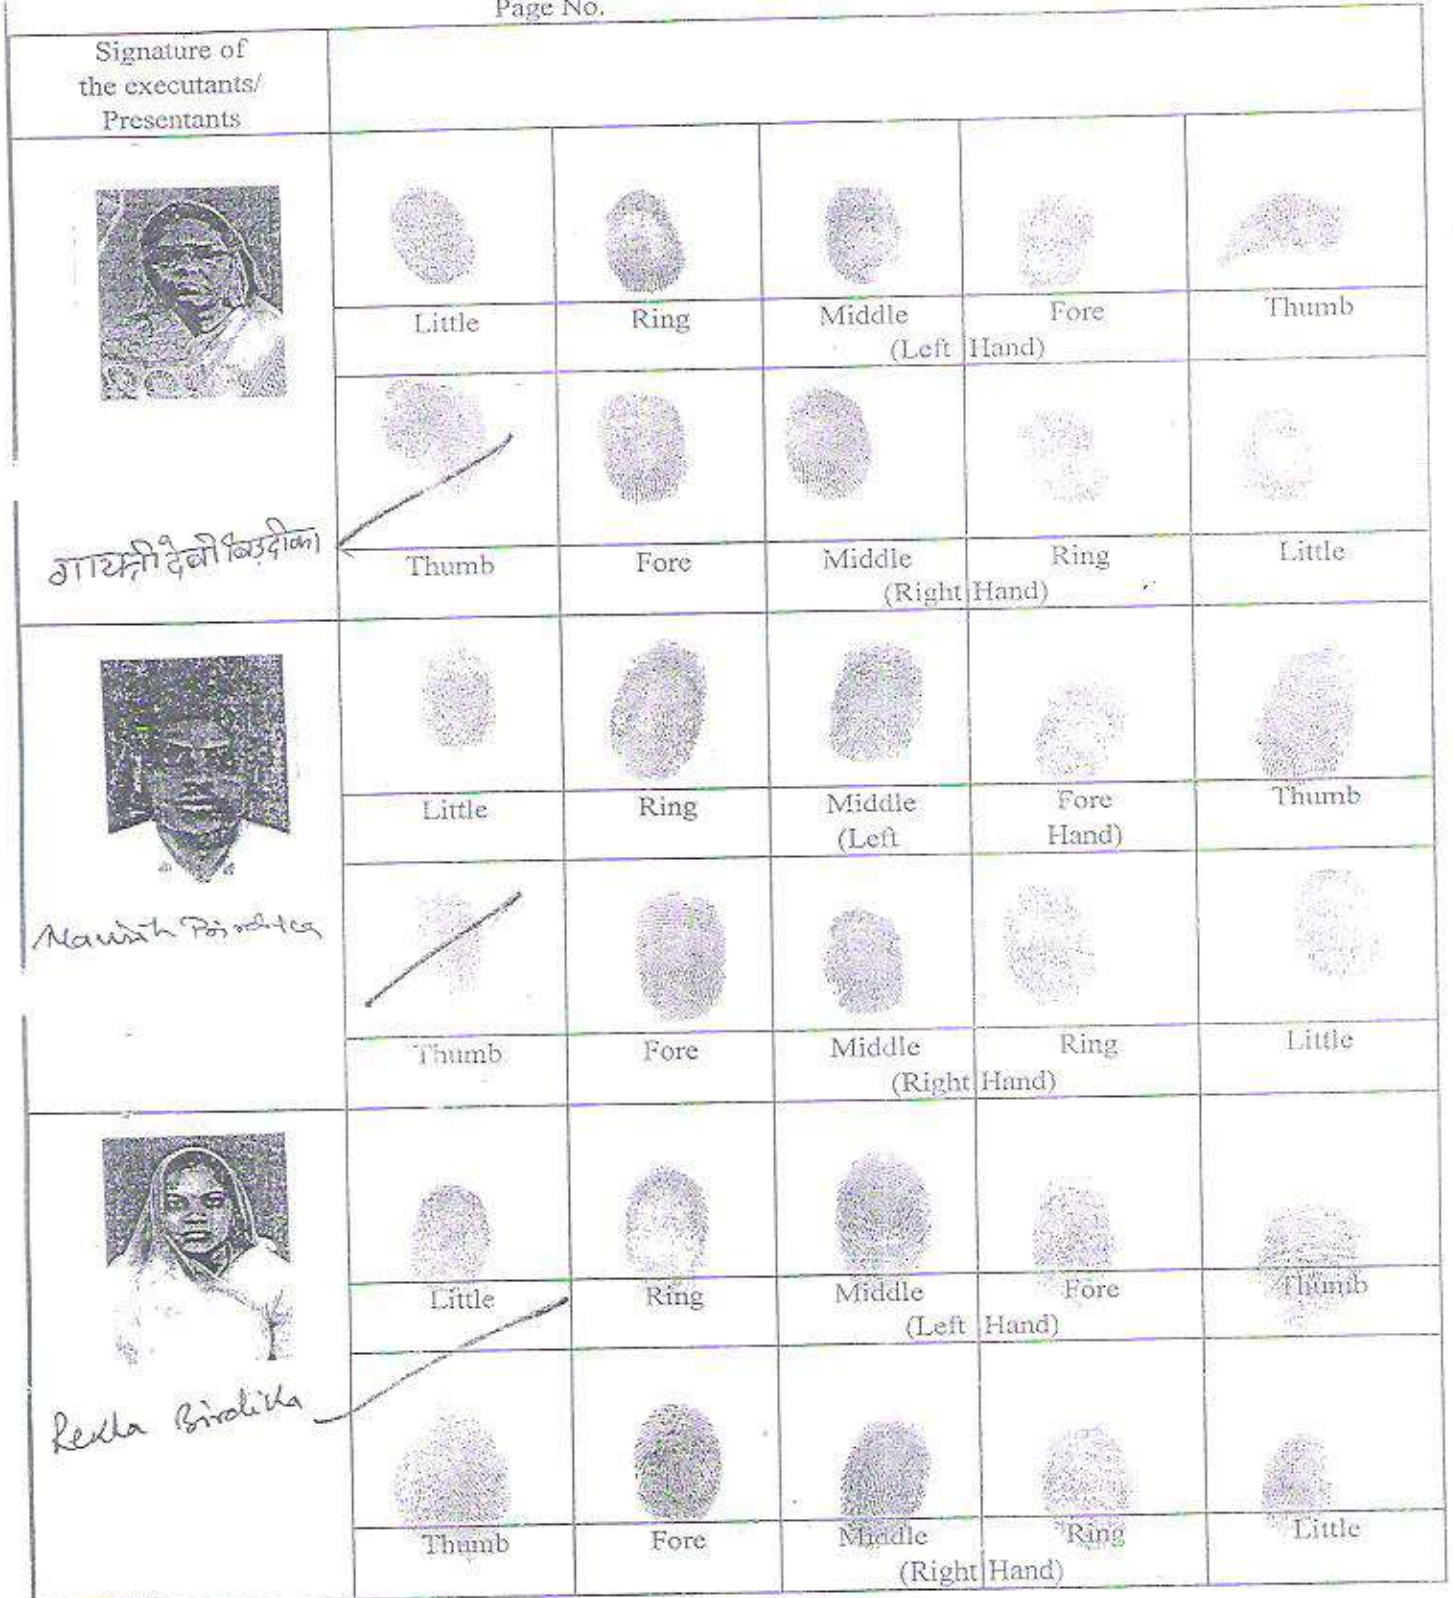 Page No.
Signature of
the executants/
Presentants
Little Ring Middle Fore Thumb
(Left Hand)
Thumb Fore Middle Ring Little
(Right Hand)
गायत्री देवी बिड़दीका
Little Ring Middle Fore Thumb
(Left Hand)
Manish Birdika
Thumb Fore Middle Ring Little
(Right Hand)
Little Ring Middle Fore Thumb
(Left Hand)
Rekha Birdika
Thumb Fore Middle Ring Little
(Right Hand)